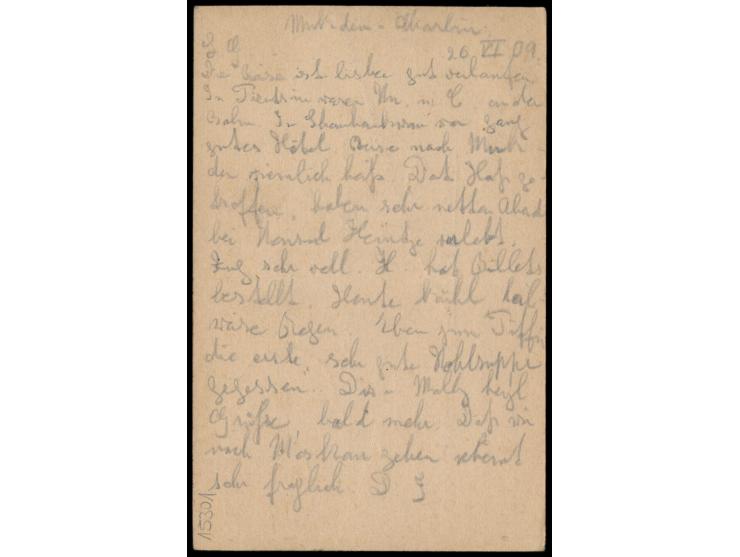 Mukden - Charbin
26 VI 09.
Die Reise ist bisher gut verlaufen
In Tientsin waren Hr. u. C. an der
Bahn. In Shanhaikwan war ganz
gutes Hôtel. Reise nach Muk-
den ziemlich heiß. Dort Haß ge-
troffen, haben sehr netten Abend
bei Konsul Heintze verlebt.
Zug sehr voll. H. hat Billets
bestellt. Heute kühl teil-
weise Regen. Eben zum Tiffin
die erste, sehr gute Kohlsuppe
gegessen. Dir u. Molly herzl
Grüße, bald mehr. Daß wir
nach Moskau gehen scheint
sehr fraglich. D
15301